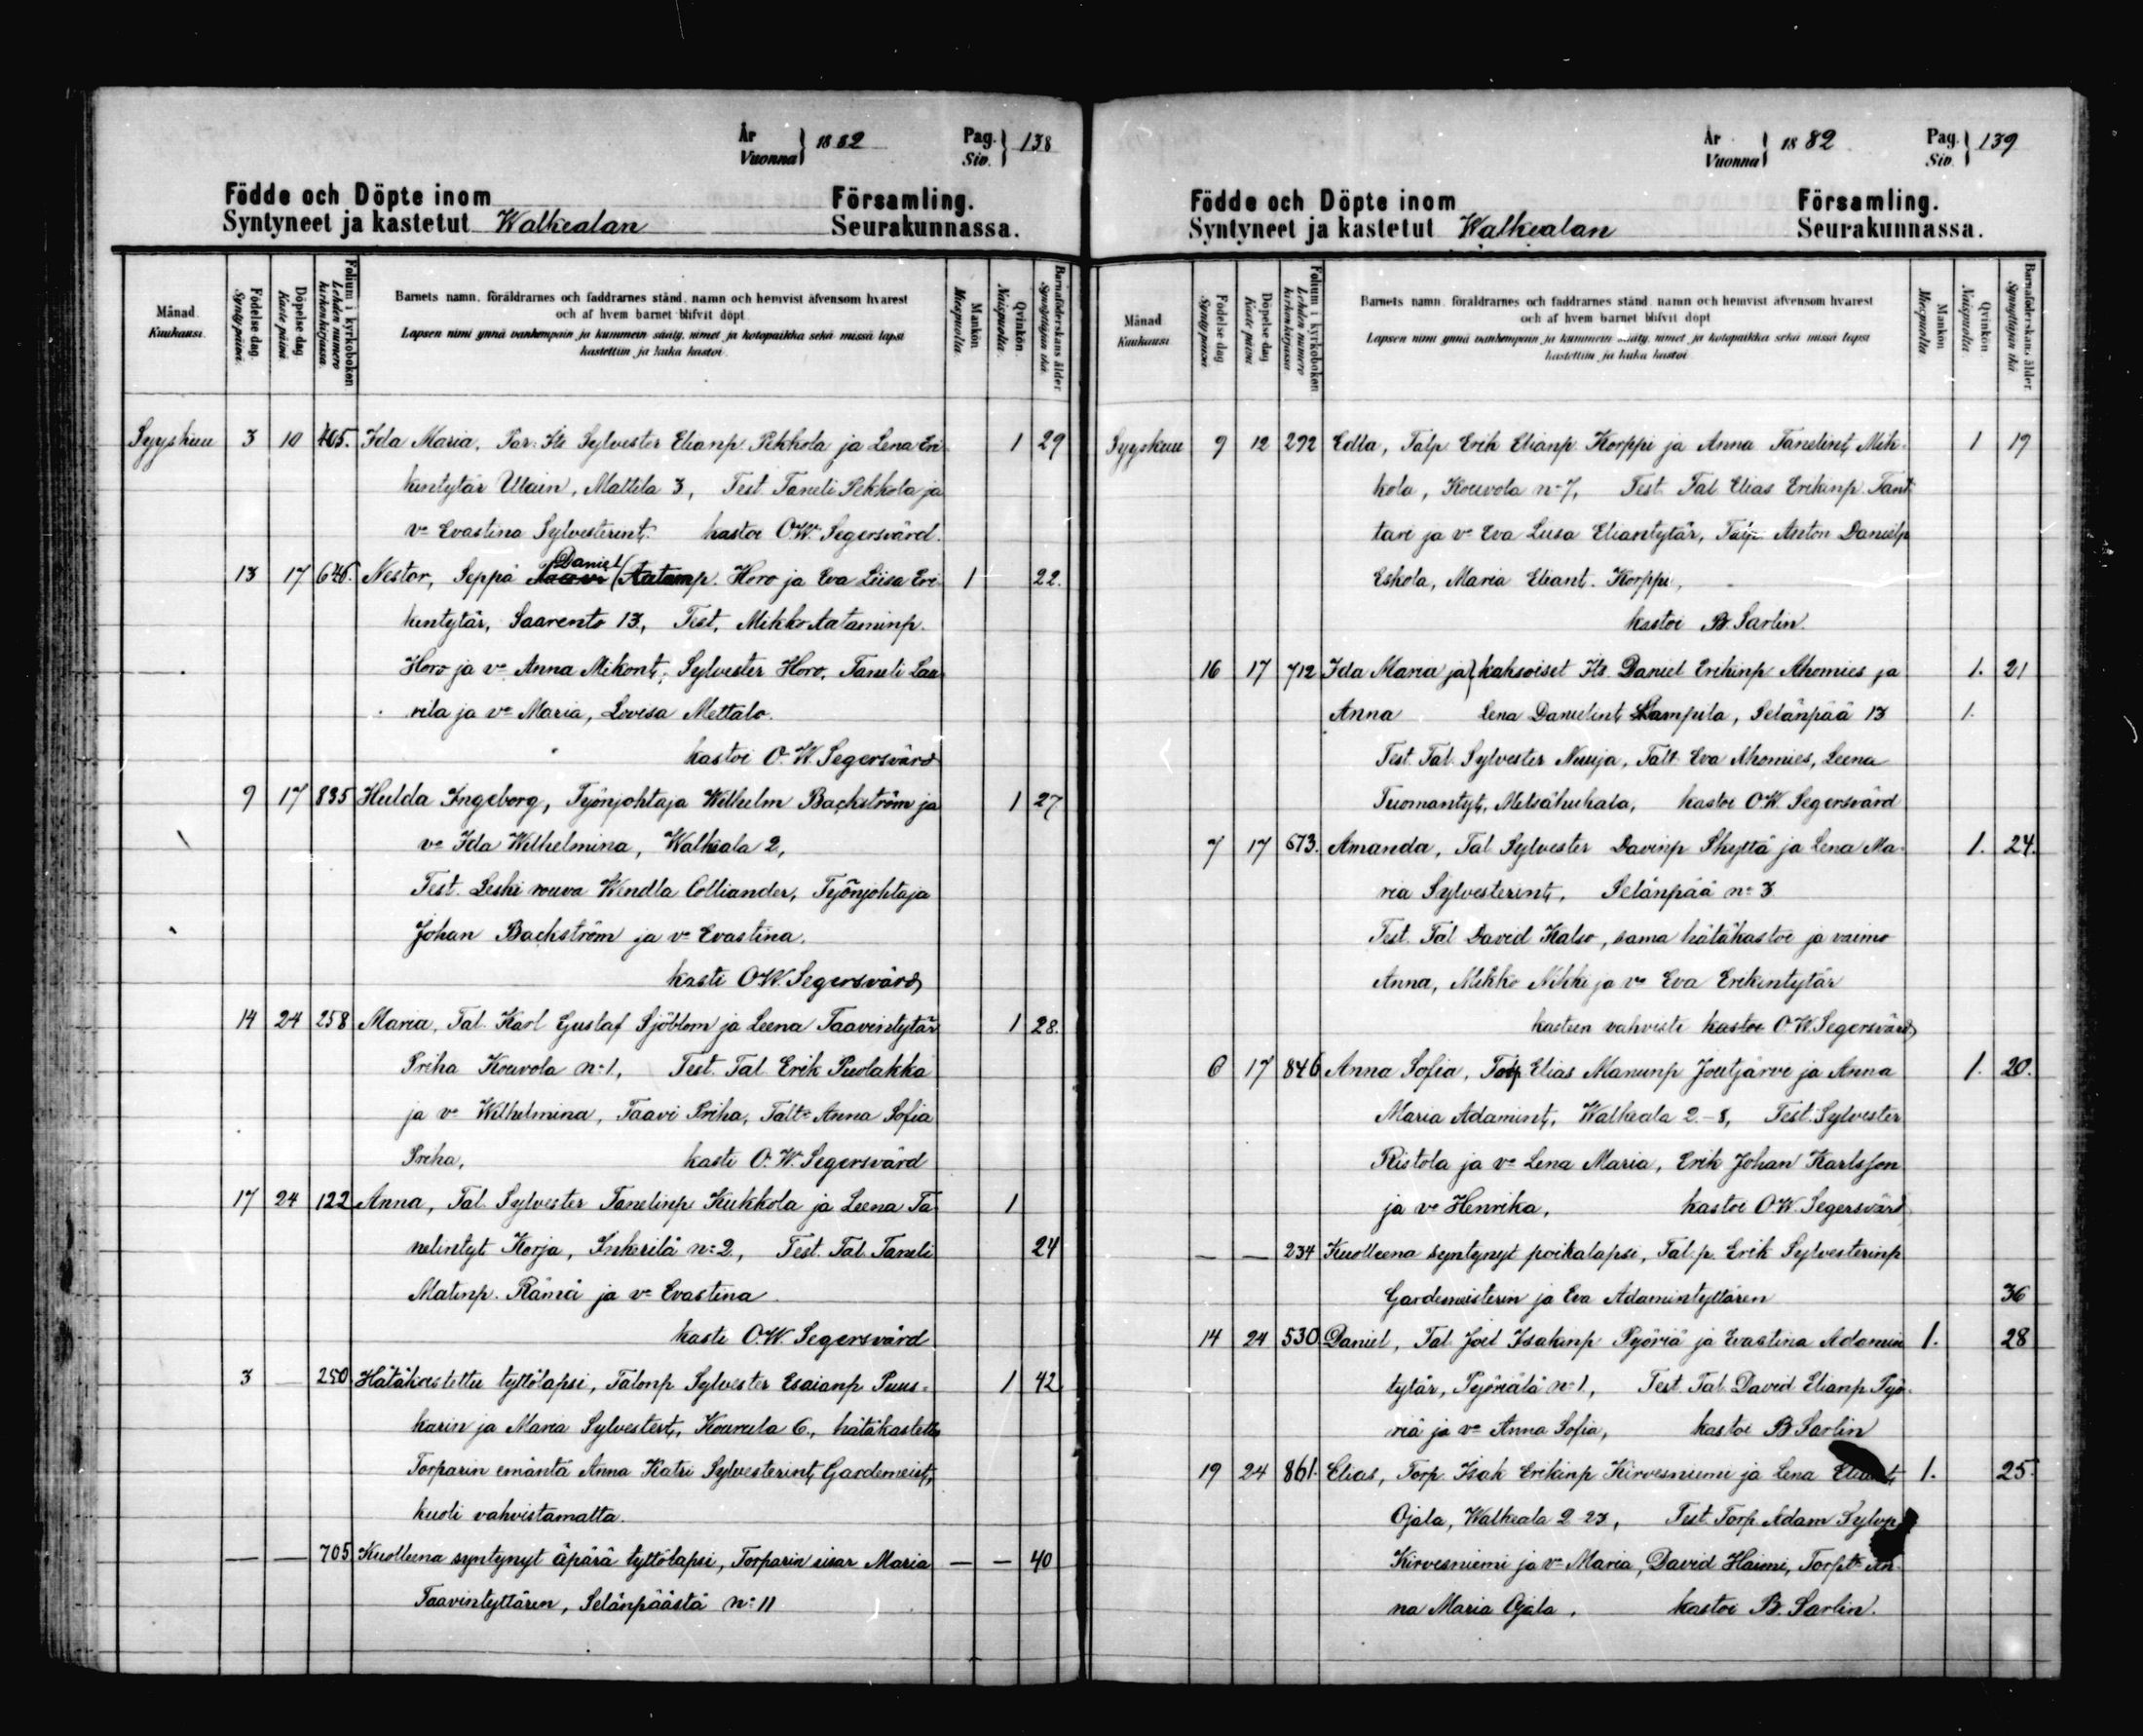 År
Vuonna } 1882 Pag.
Siv. } 138
Födde och Döpte inom Församling.
Syntyneet ja kastetut Walkealan Seurakunnassa.
Månad
Kuukausi.
Födelse dag
Synty päivä.
Döpelse dag
Kaste päivä.
Folium i kyrkoboken
Lehden numero
kirkonkirjassa.
Barnets namn, föräldrarnes och faddrarnes stånd, namn och hemvist äfvensom hvarest
och af hvem barnet blifvit döpt
Lapsen nimi ynnä vanhempain ja kummein sääty, nimet ja kotopaikka sekä missä lapsi
kastettiin ja kuka kastoi.
Mankön
Miespuolta.
Qvinkön
Naispuolta.
Barnaföderskans ålder
Synnyttäjän ikä.
Syyskuu 3 10 405. Ida Maria, Par: Its Sylvester Elianp. Pekkola ja Lena Eri- 1 29
kintytär Utain, Mattila 3, Test. Taneli Pekkola ja
vo Evastina Sylvesterint. kastoi O.W. Segersvärd.
13 17 646. Nestor, Seppä Daniel Aatamp. Horo ja Eva Liisa Eri- 1 22.
kintytär, Saarento 13, Test. Mikko Aataminp.
Horo ja vo Anna Mikont, Sylvester Horo, Taneli Laa-
rila ja vo Maria, Lovisa Mettalo.
kastoi O.W. Segersvärd
9 17 835 Hulda Ingeborg, Työnjohtaja Wilhelm Backström ja 1 27
vo Ida Wilhelmina, Walkeala 2,
Test. Leski rouva Wendla Colliander, Työnjohtaja
Johan Backström ja vo Evastina.
kasti O.W. Segersvärd
14 24 258 Maria, Tal. Karl Gustaf Sjöblom ja Leena Taavintytär 1 28.
Priha Kouvola no 1, Test. Tal. Erik Puolakka
ja vo Wilhelmina, Taavi Priha, Talt. Anna Sofia
Priha, kasti O.W. Segersvärd
17 24 122 Anna, Tal. Sylvester Tanelinp Kukkola ja Leena Ta- 1
nelintyt Korja, Inkerilä no 2, Test. Tal. Taneli 24
Matinp. Rämä ja vo Evastina.
kasti O.W. Segersvärd
3 — 250 Hätäkastettu tyttölapsi, Talonp Sylvester Esaianp Puus- 1 42
karin ja Maria Sylvestert, Kourula 6, hätäkastettu
Torparin emäntä Anna Katri Sylvesterint Gardemeist,
kuoli vahvistamatta.
— — 705 Kuolleena syntynyt äpärä tyttölapsi, Torparin sisar Maria — — 40
Taavintyttären, Selänpäästä no 11
År
Vuonna } 1882 Pag.
Siv. } 139
Födde och Döpte inom Församling.
Syntyneet ja kastetut Walkealan Seurakunnassa.
Månad
Kuukausi.
Födelse dag
Synty päivä
Döpelse dag
Kaste päivä
Folium i kyrkoboken
Lehden numero
kirkonkirjassa
Barnets namn, föräldrarnes och faddrarnes stånd, namn och hemvist äfvensom hvarest
och af hvem barnet blifvit döpt
Lapsen nimi ynnä vanhempain ja kummein sääty, nimet ja kotopaikka sekä missä lapsi
kastettiin ja kuka kastoi
Mankön
Miespuolta.
Qvinkön
Naispuolta.
Barnaföderskans ålder
Synnyttäjän ikä.
Syyskuu 9 12 292 Edla, Talp Erik Elianp Korppi ja Anna Tanelint, Mik- 1 19
kola, Kouvola no 7, Test. Tal. Elias Erikinp. Tant-
tari ja vo Eva Liisa Eliantytär, Talp Anton Danielp
Eskola, Maria Eliant. Korppi,
kastoi B. Sarlin.
16 17 712 Ida Maria ja } kaksoiset Its. Daniel Erikinp Ahomies ja 1. 21
Anna Lena Danielint Lampila, Selänpää 13 1.
Test. Tal. Sylvester Nuija, Talt Eva Ahomies, Leena
Tuomantyt, Metsäkukala, kastoi O.W. Segersvärd
7 17 673. Amanda, Tal. Sylvester Davinp Skyttä ja Lena Ma- 1. 24.
ria Sylvesterint, Selänpää no 3
Test. Tal David Kalso, sama hätäkastoi ja vaimo
Anna, Mikko Nikki ja vo Eva Erikintytär
kasteen vahvisti kastoi O.W. Segersvärd
6 17 846 Anna Sofia, Torp Elias Manunp Joutjärvi ja Anna 1. 20.
Maria Adamint, Walkeala 2-8, Test. Sylvester
Ristola ja vo Lena Maria, Erik Johan Karlsson
ja vo Henrika, kastoi O.W. Segersvärd
— — 234 Kuolleena syntynyt poikalapsi, Tal.p. Erik Sylvesterinp
Gardemeisterin ja Eva Adamintyttären 36
14 24 530 Daniel, Tal. Joel Isakinp Pyöriä ja Evastina Adamin 1. 28
tytär, Pyöriälä no 1, Test. Tal. David Elianp Pyö-
riä ja vo Anna Sofia, kastoi B Sarlin
19 24 861. Elias, Torp. Isak Erikinp Kirvesniemi ja Lena Eliant, 1. 25.
Ojala, Walkeala 2 23, Test. Torp. Adam Sylvp
Kirvesniemi ja vo Maria, David Haimi, Torpt An-
na Maria Ojala, kastoi B. Sarlin.